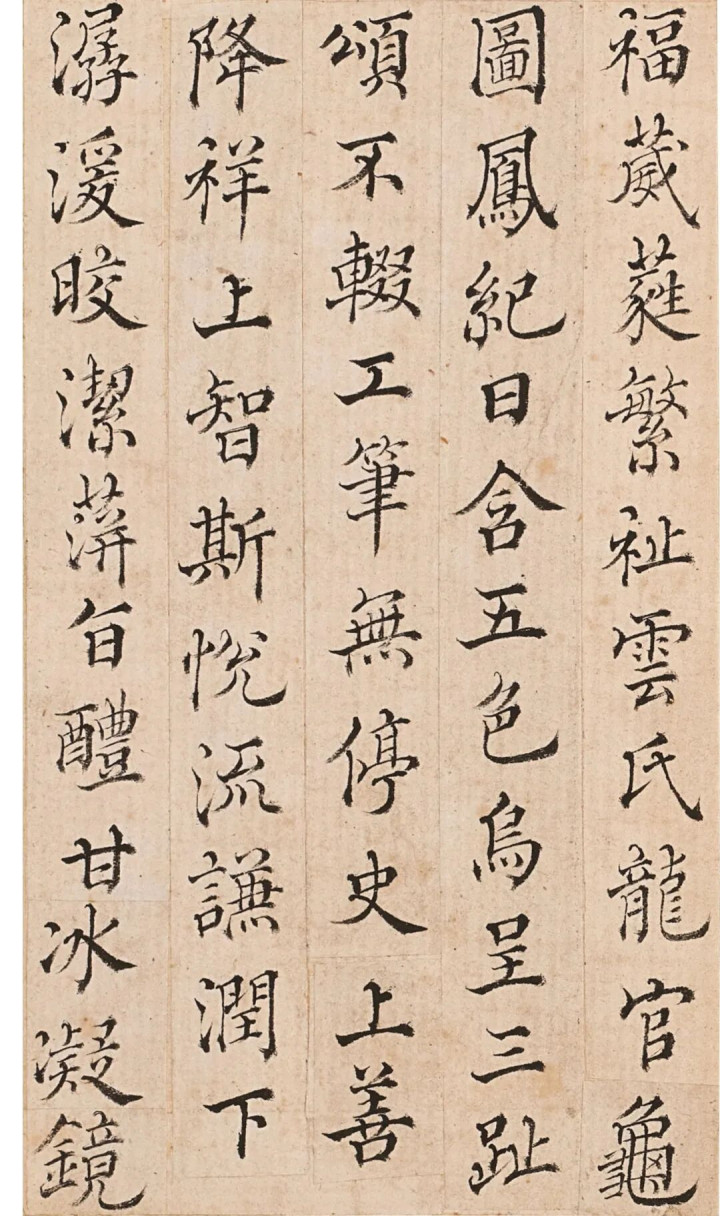 福葳蕤繁祉雲氏龍官龜
圖鳳紀日含五色烏呈三趾
頌不輟工筆無停史上善
降祥上智斯悅流謙潤下
潺湲晈潔蓱旨醴甘冰凝鏡